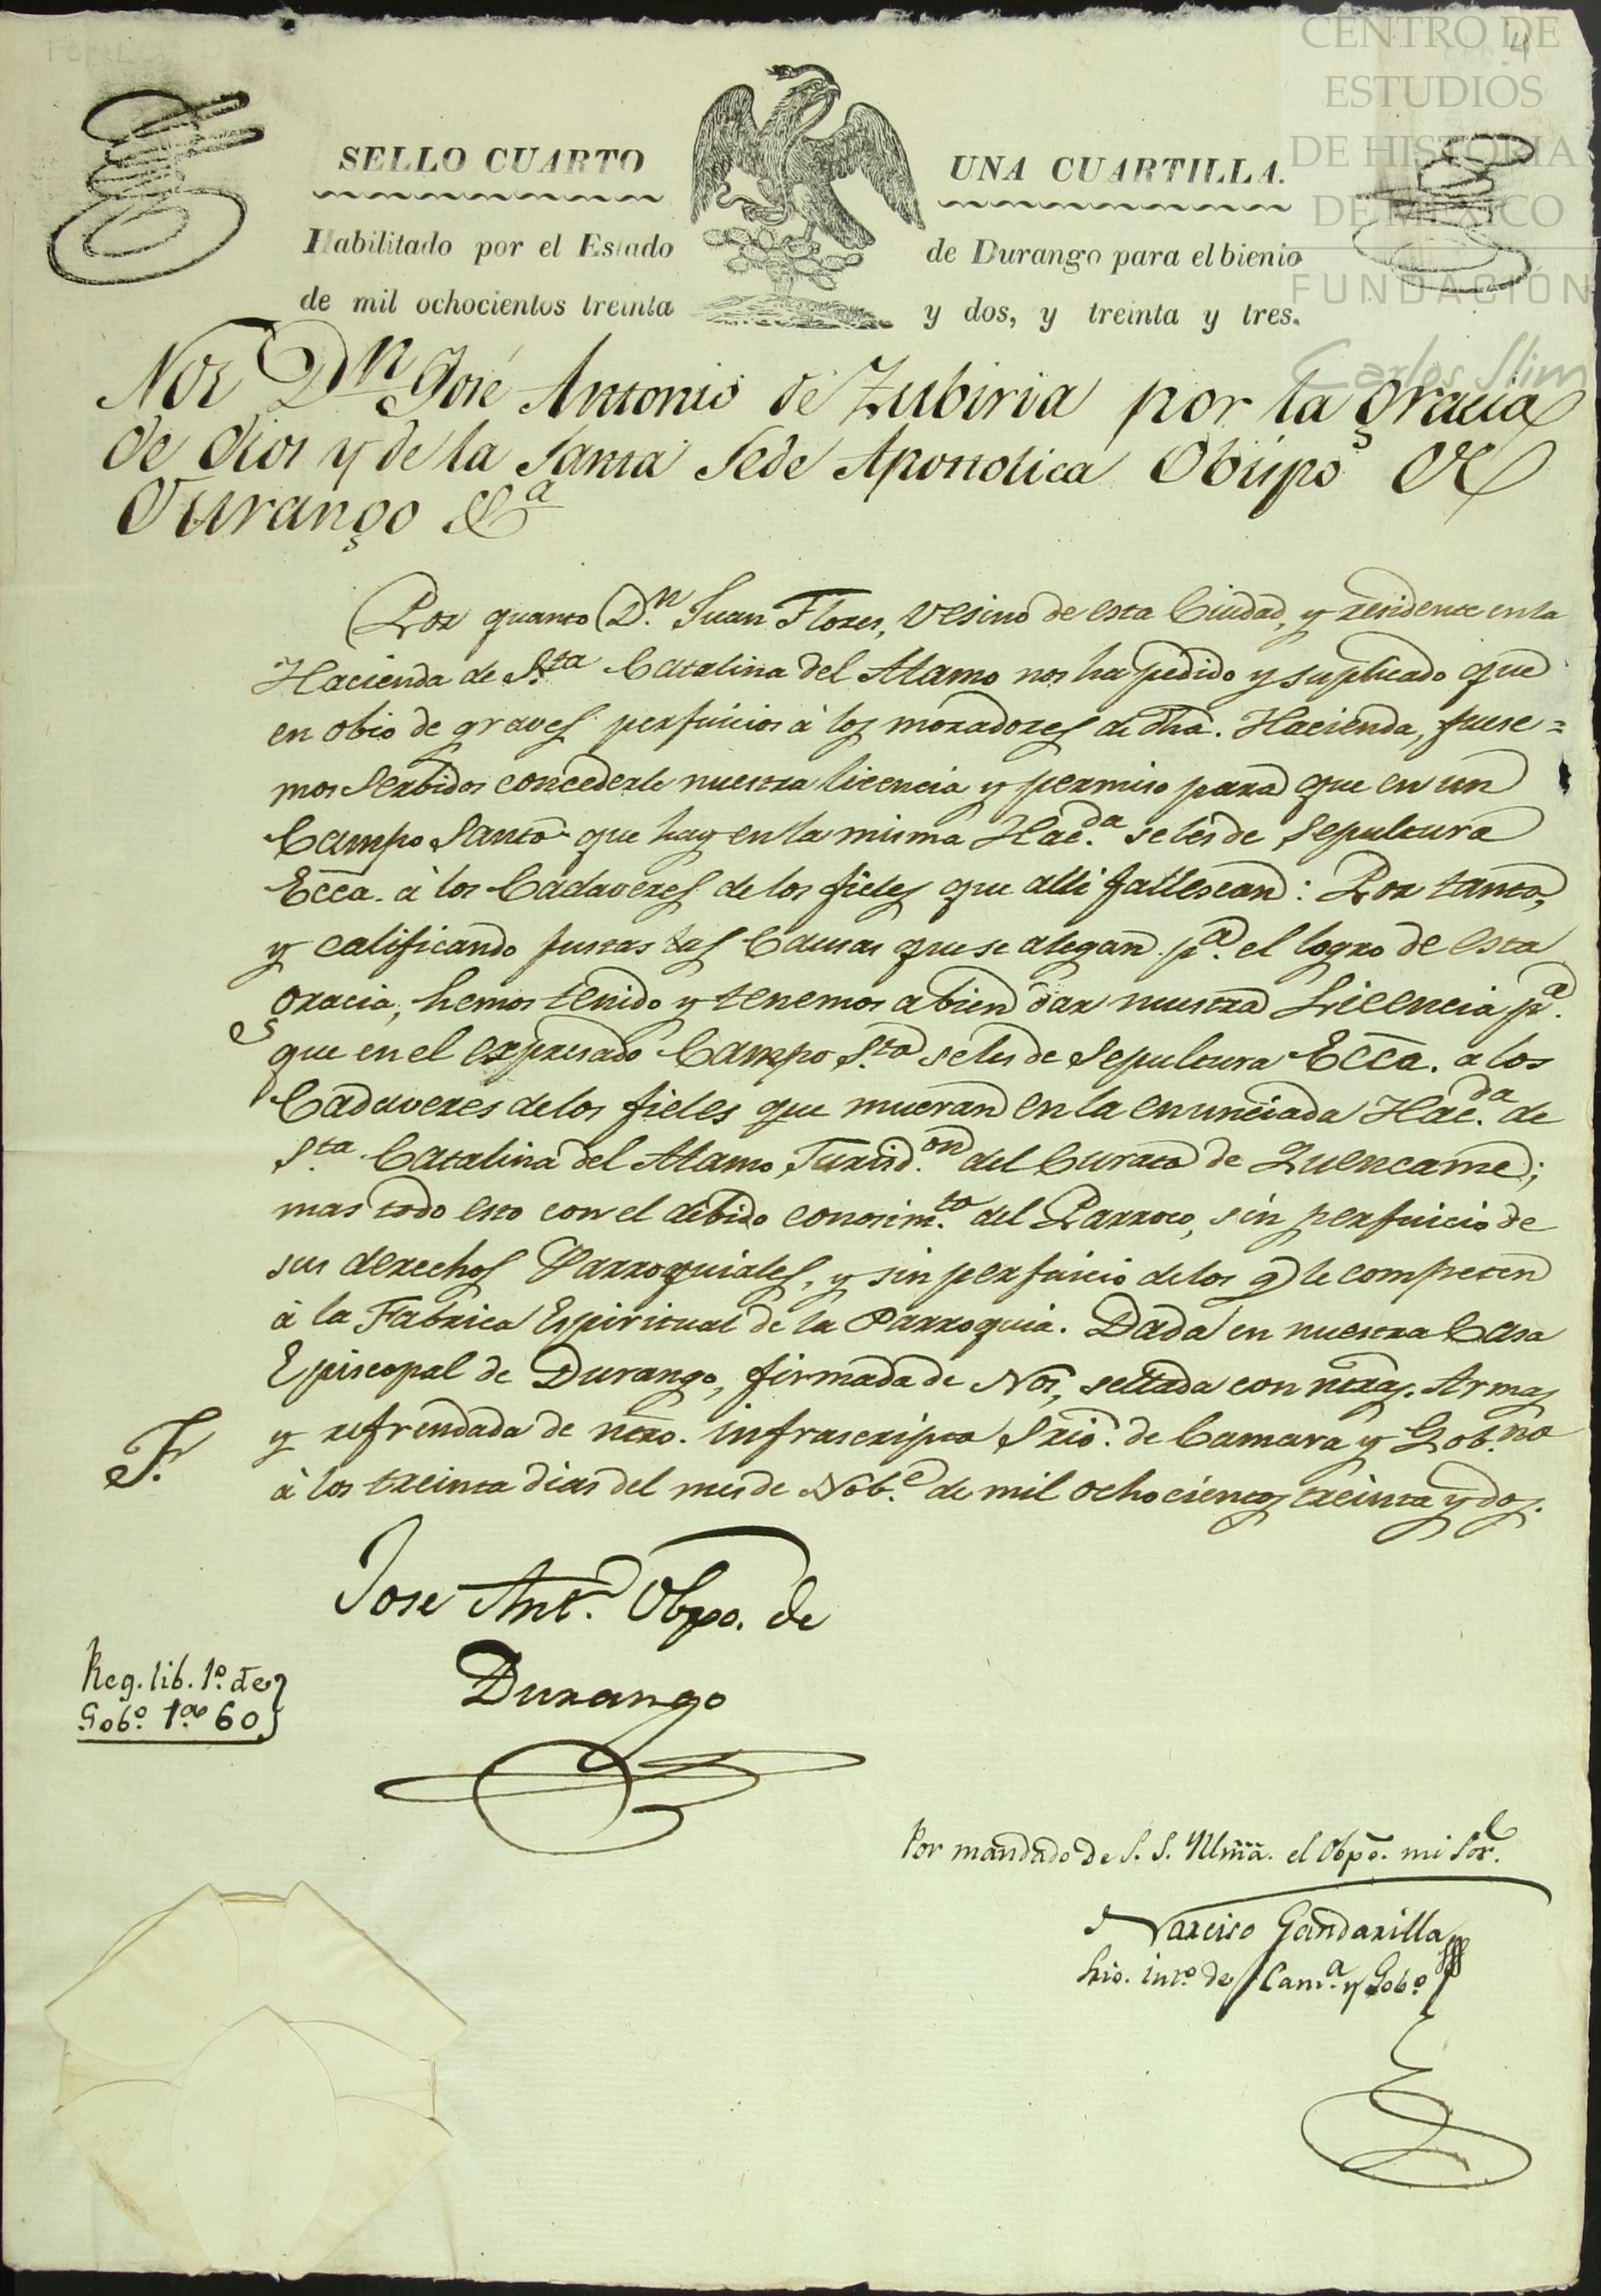 CENTRO DE
ESTUDIOS
DE HISTORIA
DE MÉXICO
FUNDACIÓN
Carlos Slim
4
SELLO CUARTO
UNA CUARTILLA.
Habilitado por el Estado
de Durango para el bienio
de mil ochocientos treinta
y dos, y treinta y tres.
Nos Dn José Antonio de Zubiria por la gracia
de dios y de la Santa Sede Apostolica Obispo de
Durango &a
Por quanto Dn. Juan Flores, vesino de esta Ciudad, y residente en la
Hacienda de Sta. Catalina del Alamo nos ha pedido y suplicado que
en obio de graves perjuicios à los moradores de dha. Hacienda, fuese=
mos serbidos concederle nuestra licencia y permiso para que en un
Campo Santo que hay en la misma Hac.da se les de sepultura
Ecca. à los Cadaveres de los fieles que alli fallescan: Por tanto,
y calificando justas las Causas que se alegan pa. el logro de esta
gracia, hemos tenido y tenemos a bien dar nuestra Licencia pa.
que en el expresado Campo Sto. se les de sepultura Ecca. a los
Cadaveres de los fieles que mueran en la enunciada Hac.da de
Sta. Catalina del Alamo, Jurisd.on del Curato de Quencamé;
mas todo esto con el debido conosim.to del Parroco, sin perjuicio de
sus derechos Parroquiales, y sin perjuicio de los q. le competen
à la Fabrica Espiritual de la Parroquia. Dada en nuestra Casa
Episcopal de Durango, firmada de Nos, sellada con ntras. Armas
y refrendada de ntro. infrascripto Srio. de Camara y Gob.no
à los treinta dias del mes de Nob.e de mil ochocientos treinta y dos.
F.
Jose Ant.o Obpo. de
Durango
Reg. lib. 1o. de
Gobo. 60
Por mandado de S. S. Yllma. el Obpo. mi Sor.
Narciso Gandarilla
Srio. into. de Cama. y Gobo.